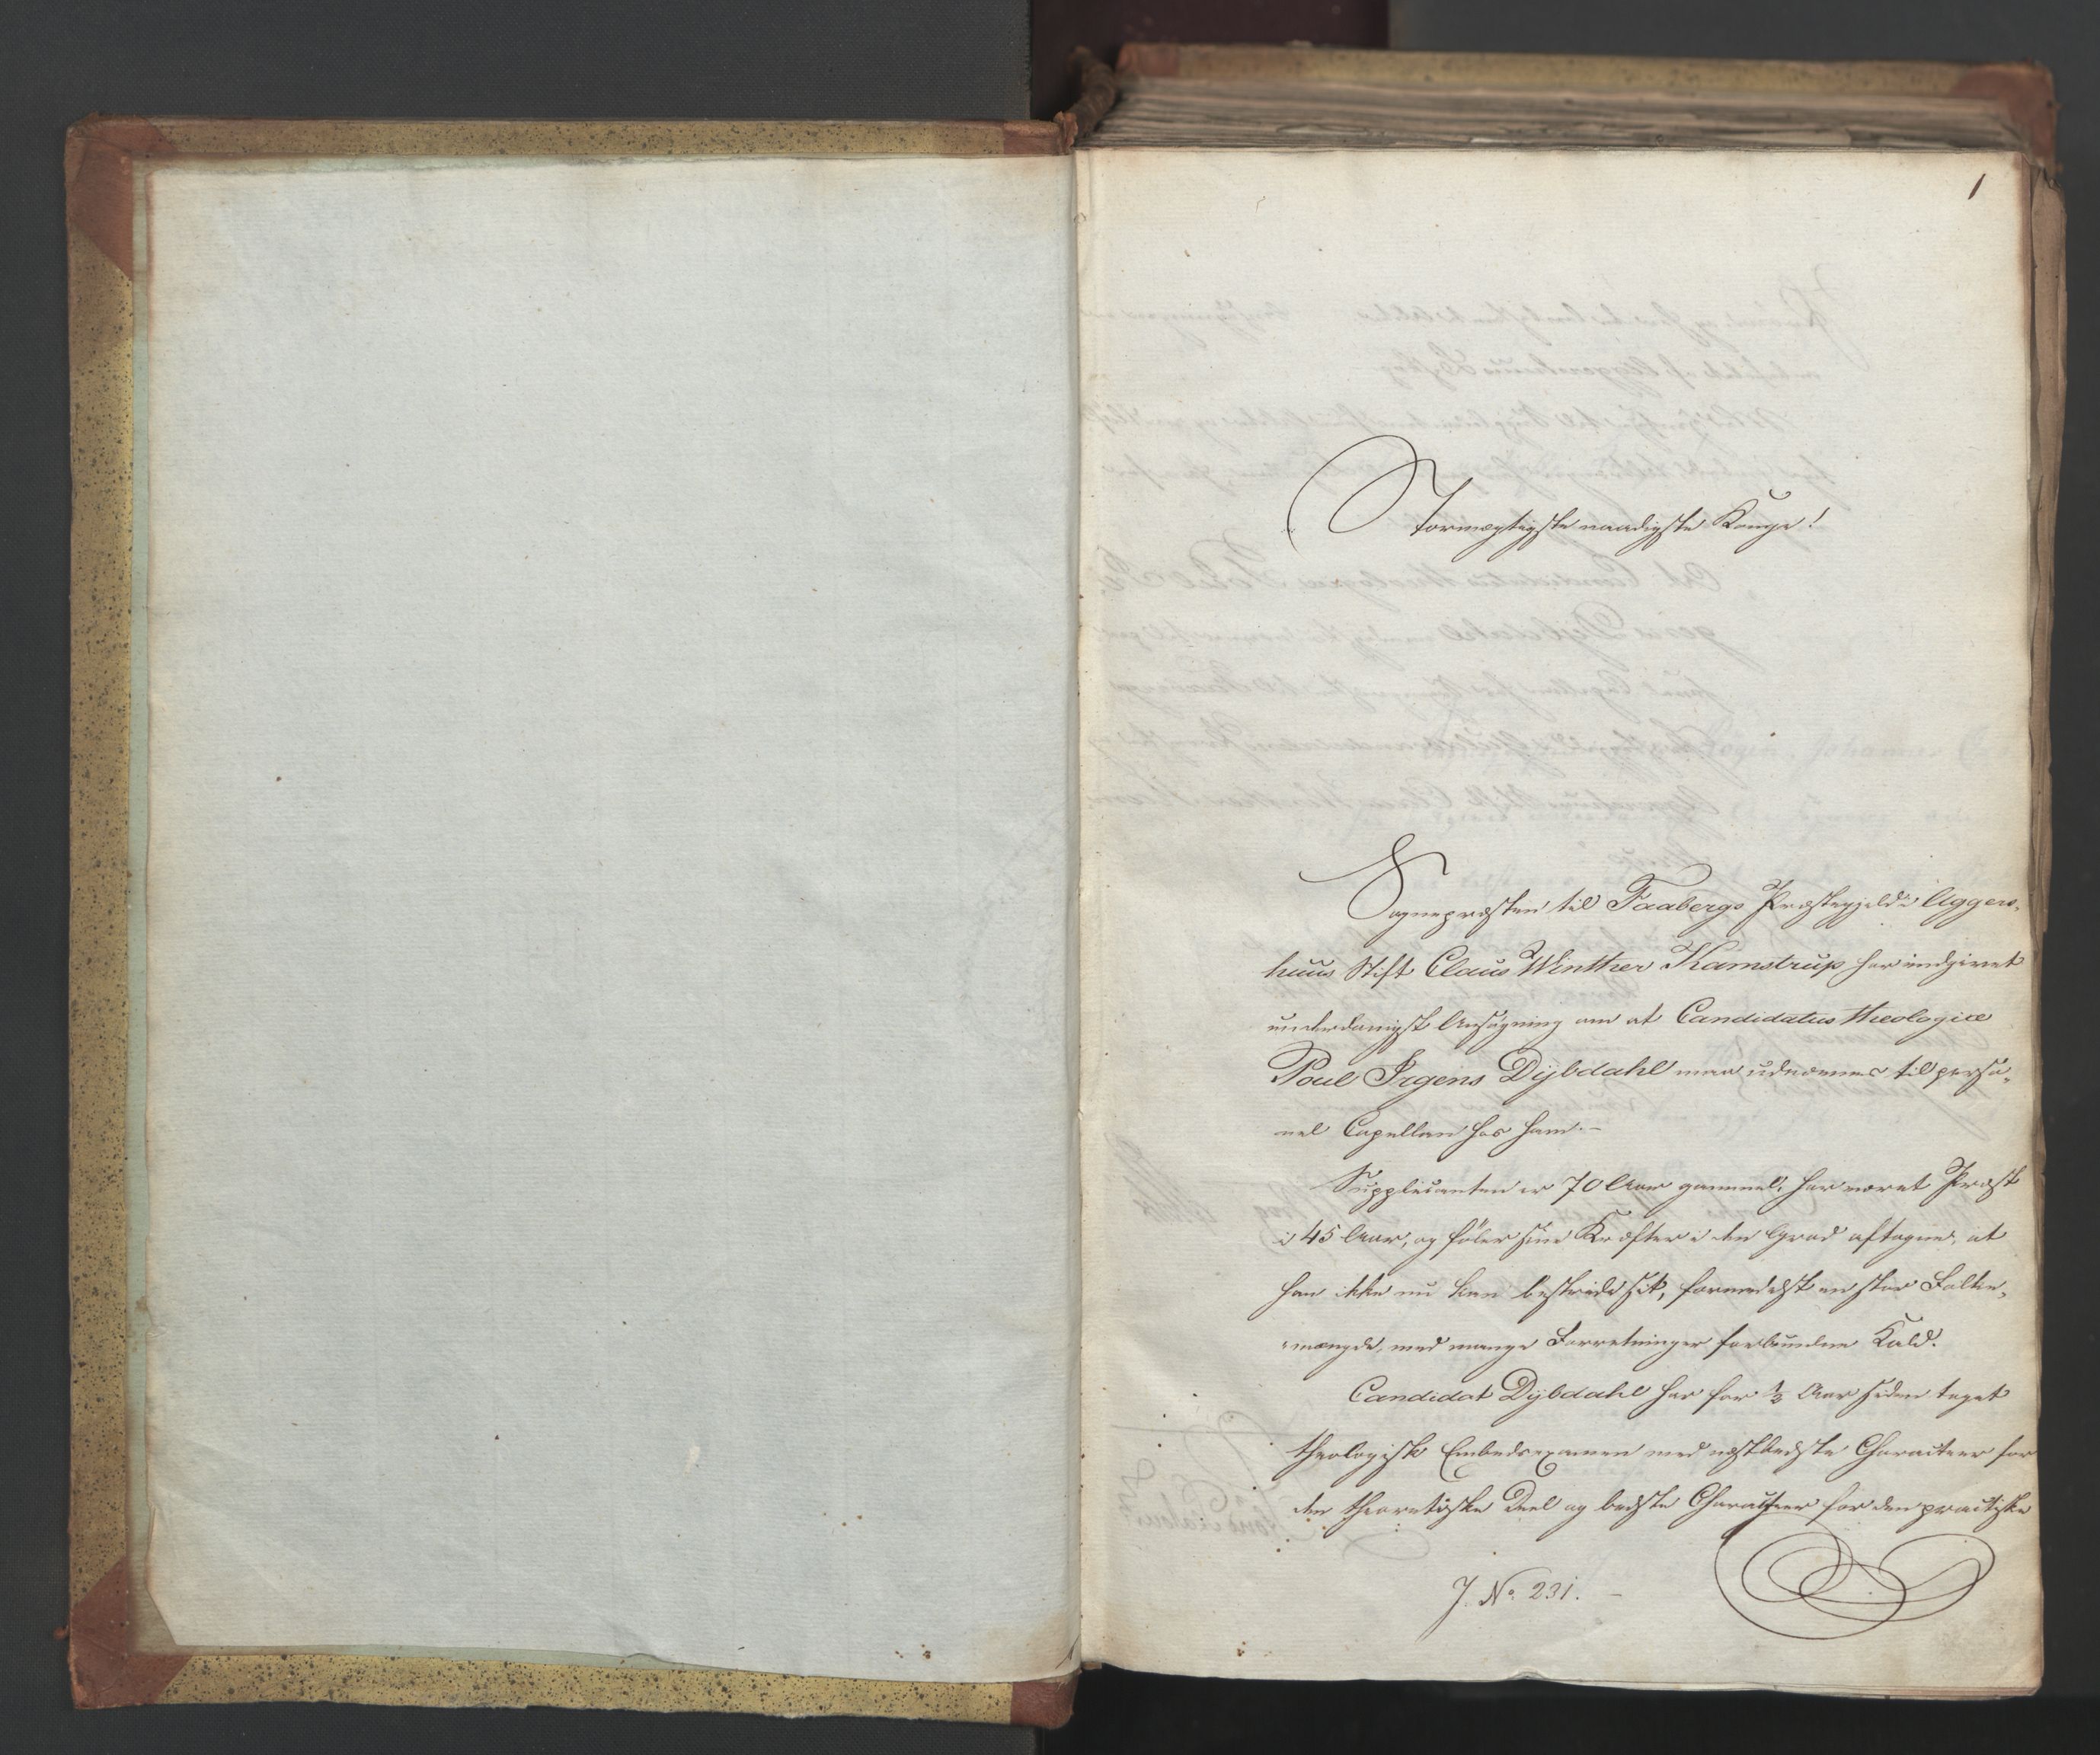 1
Stormægtigste naadigste Konge!
Sognepræsten til Faabergs Præstegjeld i Aggers-
huus Stift Claus Winther Kamstrup har indgivet
underdanigst Ansøgning om at Candidatus theologiæ
Poul Irgens Dybdahl maa udnævnes til perso-
nel Capellan hos ham.-
Supplicanten er 70 Aar gammel, har været Præst
i 45 Aar, og føler sine Kræfter i den Grad aftagne, at
han ikke nu kan bestride sit, formedelst en stor Folke-
mængde, med mange Forretninger forbundne Kald.
Candidat Dybdahl har for ½ Aar siden taget
theologisk Embedsexamen med næstbedste Characteer for
den theoretiske Deel og bedste Characteer for den practiske
J. No. 231. -